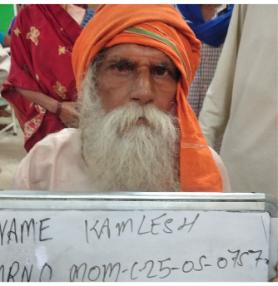 NAME KAMLESH
MRNO MOM-C-25-05-0757